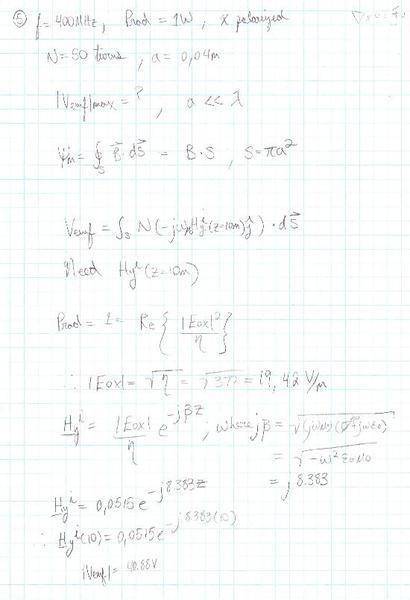 ⑤ f = 400MHz, Prad = 1W, x polarized
N = 50 turns, a = 0,04m
|Vemf|max = ?, a << λ
Ψm = ∮s B⃗ · dS⃗ = B · S, S = πa²
Vemf = ∫s N(-jωμ₀Hyⁱ(z=10m)ŷ) · dS⃗
Need Hyⁱ(z=10m)
Prad = 1 = Re { |Eox|² / η }
∴ |Eox| = √η = √377 = 19,42 V/m
Hyⁱ = |Eox| / η e^-jβz ; where jβ =
= √-ω²ε₀μ₀
= j 8.383
Hyⁱ = 0,0515e^-j8.383z
∴ Hyⁱ(10) = 0,0515e^-j8.383(10)
|Vemf| = 40.88V